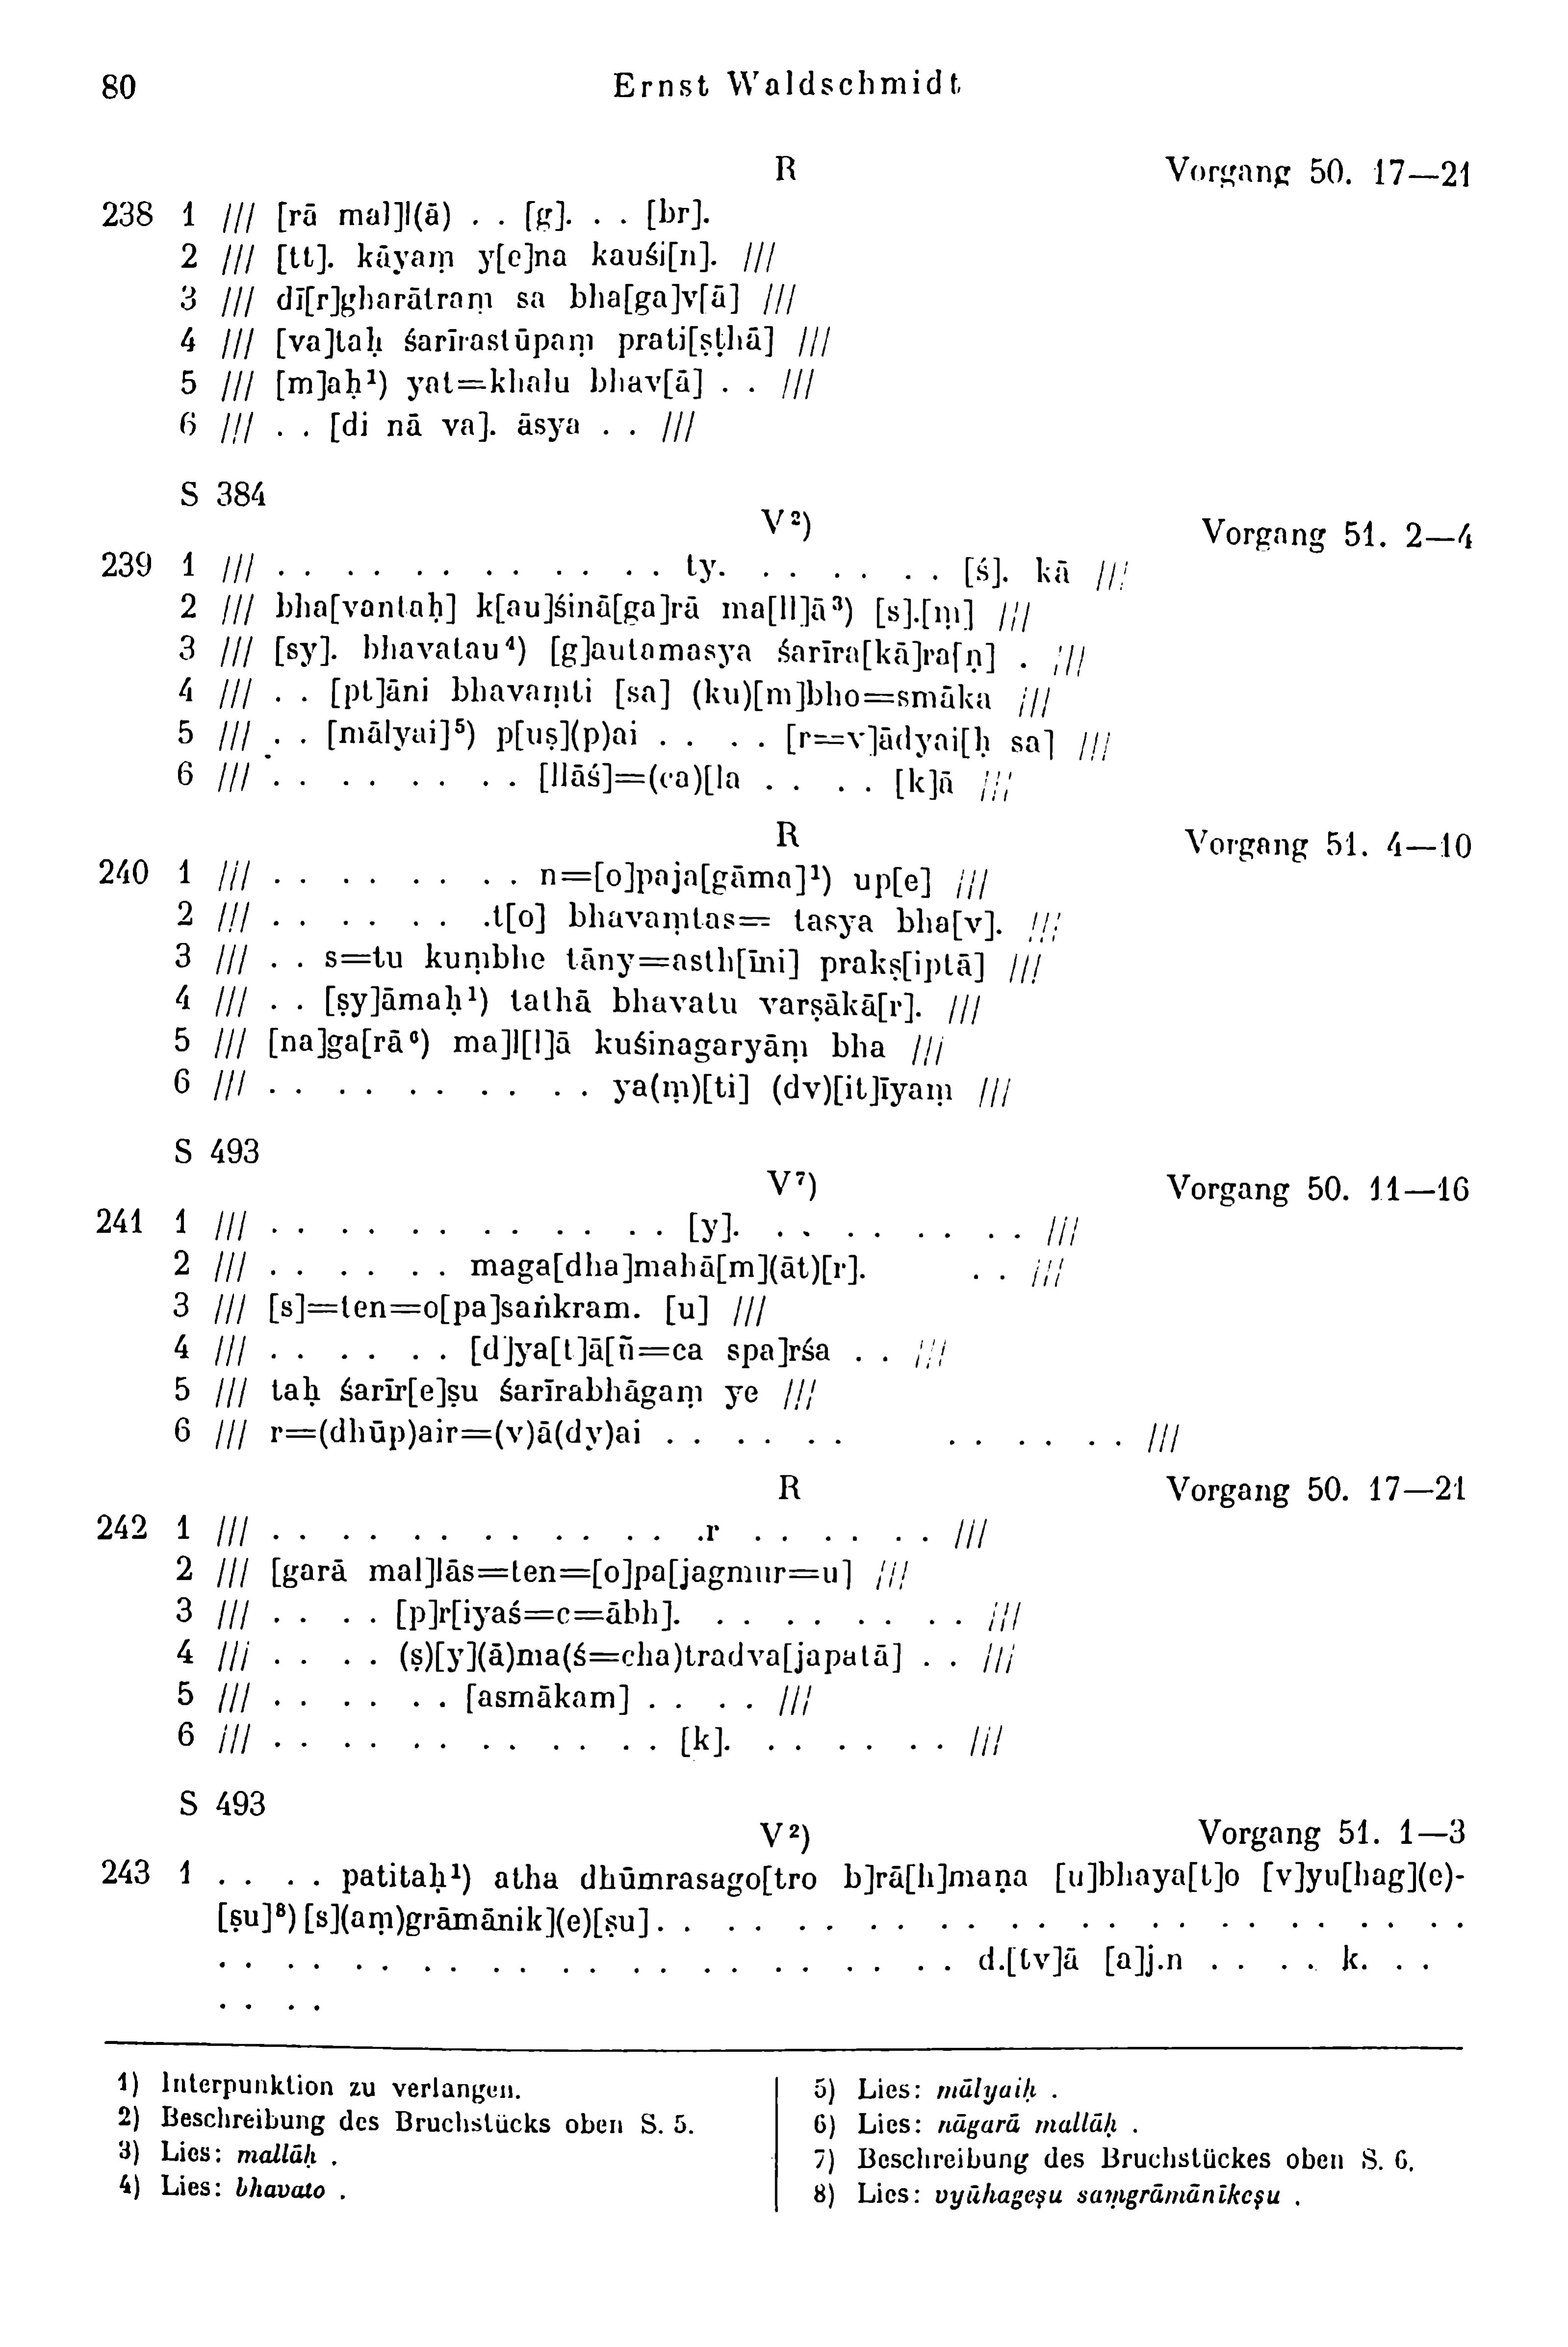 80 Ernst Waldschmidt
R Vorgang 50. 17—21
238 1 /// [rā mal]l(ā) . . [g]. . . [br].
2 /// [tt]. kāyaṃ y[e]na kauśi[n]. ///
3 /// dī[r]gharātraṃ sa bha[ga]v[ā] ///
4 /// [va]taḥ śarīrastūpaṃ prati[ṣṭhā] ///
5 /// [m]aḥ¹) yat=khalu bhav[ā] . . ///
6 /// . . [di nā va]. āsya . . ///
S 384
V²) Vorgang 51. 2—4
239 1 /// . . . . . . . . . . . . ty. . . . . . . [ś]. kā ///
2 /// bha[vantaḥ] k[au]śinā[ga]rā ma[ll]ā³) [s].[ṃ] ///
3 /// [sy]. bhavatau⁴) [g]autamasya śarīra[kā]ra[ṇ] . ///
4 /// . . [pt]āni bhavaṃti [sa] (ku)[m]bho=smāka ///
5 /// . . [mālyai]⁵) p[uṣ](p)ai . . . . [r=v]ādyai[ḥ sa] ///
6 /// . . . . . . . . [llāś]=(ca)[la . . . . [k]ā ///
R Vorgang 51. 4—10
240 1 /// . . . . . . . . n=[o]paja[gāma]¹) up[e] ///
2 /// . . . . . . .t[o] bhavaṃtas= tasya bha[v]. ///
3 /// . . s=tu kuṃbhe tāny=asth[īni] prakṣ[iptā] ///
4 /// . . [ṣy]āmaḥ¹) tathā bhavatu varṣākā[r]. ///
5 /// [na]ga[rā⁶) ma]l[l]ā kuśinagaryāṃ bha ///
6 /// . . . . . . . . . . ya(ṃ)[ti] (dv)[it]īyaṃ ///
S 493
V⁷) Vorgang 50. 11—16
241 1 /// . . . . . . . . . . . . [y]. . . . . . . . . ///
2 /// . . . . . . maga[dha]mahā[m](āt)[r]. . . ///
3 /// [s]=ten=o[pa]saṅkram. [u] ///
4 /// . . . . . . [d]ya[t]ā[ñ=ca spa]rśa . . ///
5 /// taḥ śarīr[e]ṣu śarīrabhāgaṃ ye ///
6 /// r=(dhūp)air=(v)ā(dy)ai . . . . . . . . . . . . ///
R Vorgang 50. 17—21
242 1 /// . . . . . . . . . . . . .r . . . . . . ///
2 /// [garā mal]lās=ten=[o]pa[jagmur=u] ///
3 /// . . . . [p]r[iyaś=c=ābh]. . . . . . . . . ///
4 /// . . . . (ṣ)[y](ā)ma(ś=cha)tradva[japatā] . . ///
5 /// . . . . . . [asmākam] . . . . ///
6 /// . . . . . . . . . . . . [k]. . . . . . . ///
S 493
V²) Vorgang 51. 1—3
243 1 . . . . patitaḥ¹) atha dhūmrasago[tro b]rā[h]maṇa [u]bhaya[t]o [v]yu[hag](e)-
[ṣu]⁸) [s](aṃ)grāmānik](e)[ṣu] . . . . . . . . . . . . . . . . . . . . . . . .
. . . . . . . . . . . . . . . . . . . . . . d.[tv]ā [a]j.n . . . . k. . .
. . . .
1) Interpunktion zu verlangen.
2) Beschreibung des Bruchstücks oben S. 5.
3) Lies: mallāḥ .
4) Lies: bhavato .
5) Lies: mālyaiḥ .
6) Lies: nāgarā mallāḥ .
7) Beschreibung des Bruchstückes oben S. 6.
8) Lies: vyūhageṣu saṃgrāmānīkeṣu .